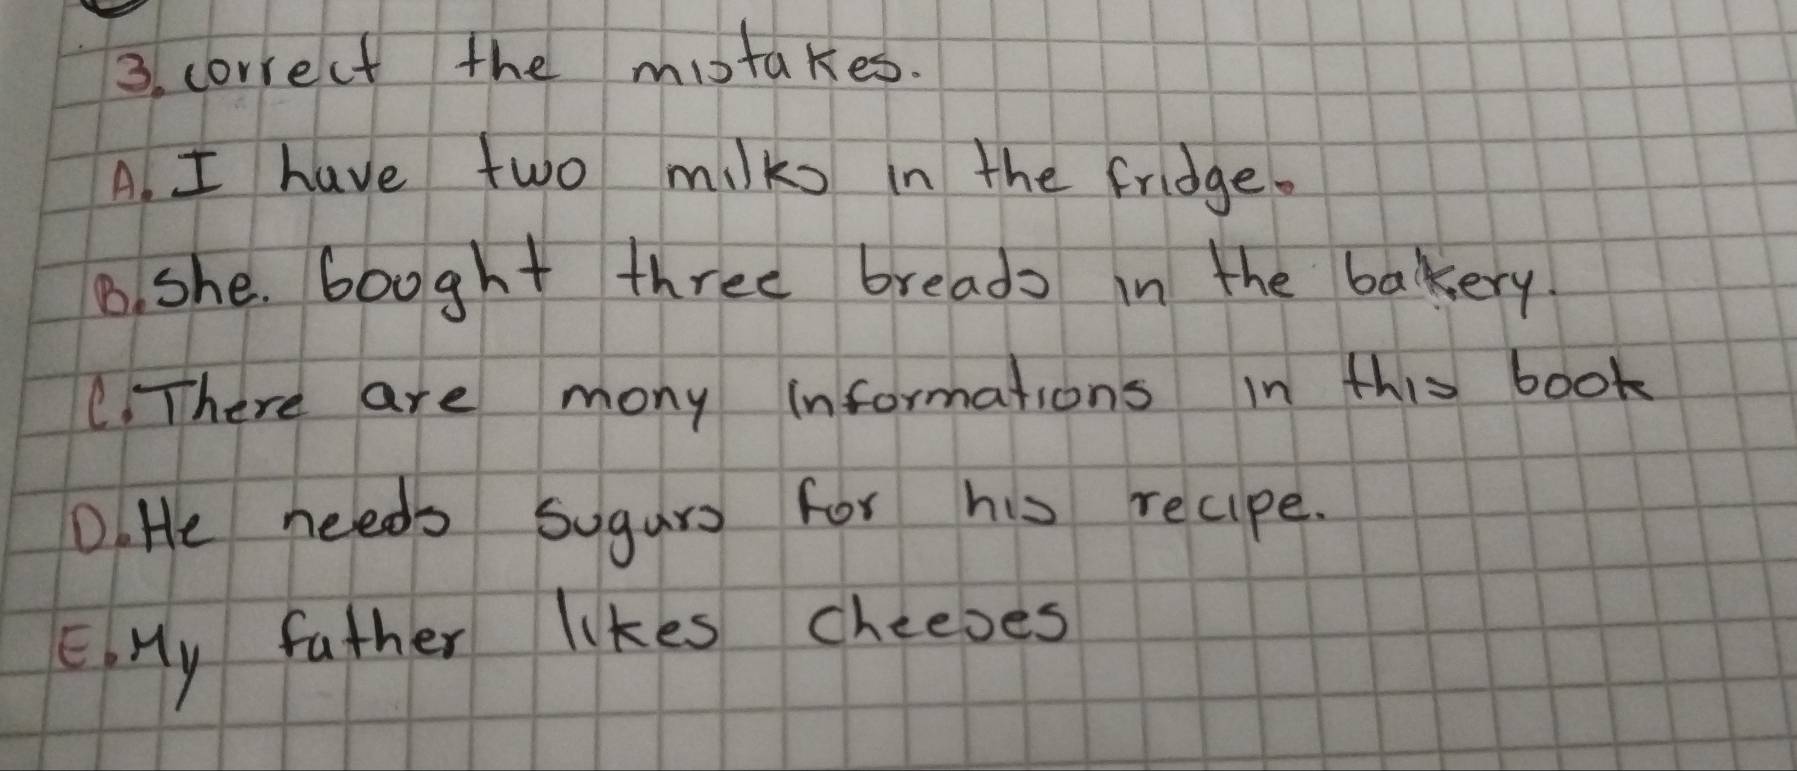 3. correct the mistakes.
A. I have two milks in the fridge.
B. She. bought three breads in the bakery.
C. There are many informations in this book
D. He needs sugars for his recipe.
E. My father likes cheeses